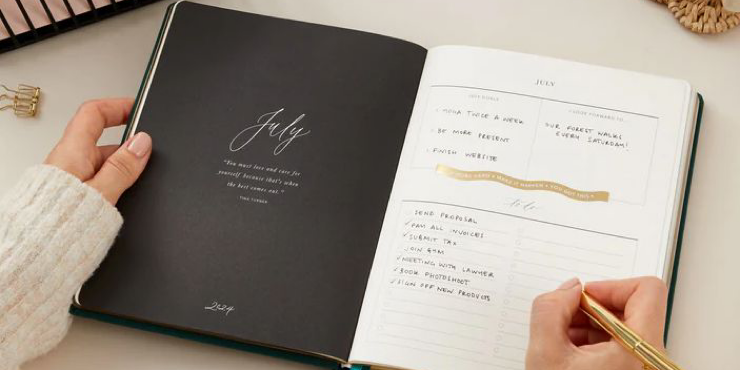 July
"You must love and care for
yourself because that's when
the best comes out."
TINA TURNER
2024
JULY
YOGA TWICE A WEEK
BE MORE PRESENT
FINISH WEBSITE
I LOOK FORWARD TO...
OUR FOREST WALKS
EVERY SATURDAY!
to do
SEND PROPOSAL
PAY ALL INVOICES
SUBMIT TAX
JOIN GYM
MEETING WITH LAWYER
BOOK PHOTOSHOOT
SIGN OFF NEW PRODUCTS